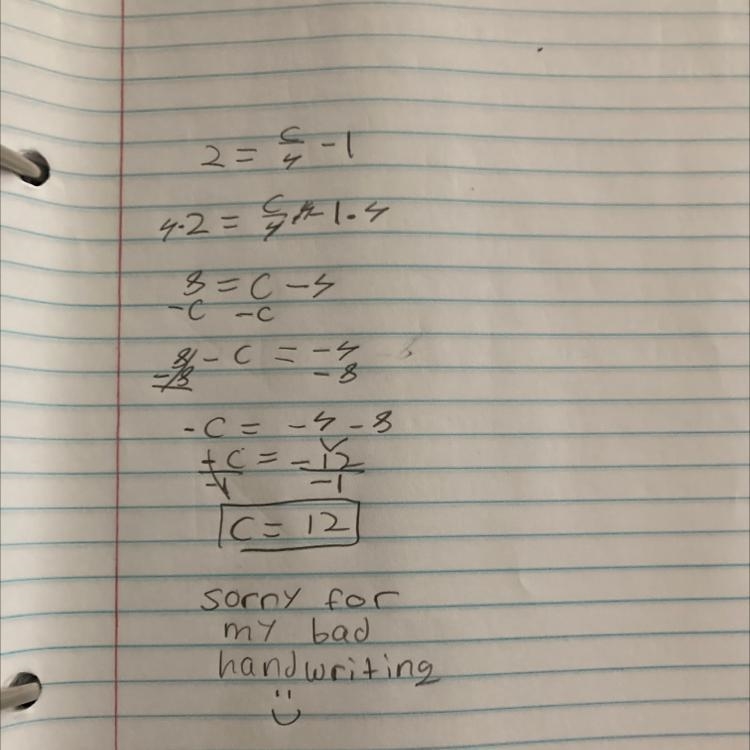 2 = c/4 - 1
4·2 = c/4·4 - 1·4
8 = c - 4
-c -c
8 - c = -4
-8 -8
-c = -4 - 8
-c/-1 = -12/-1
c = 12
sorry for
my bad
handwriting